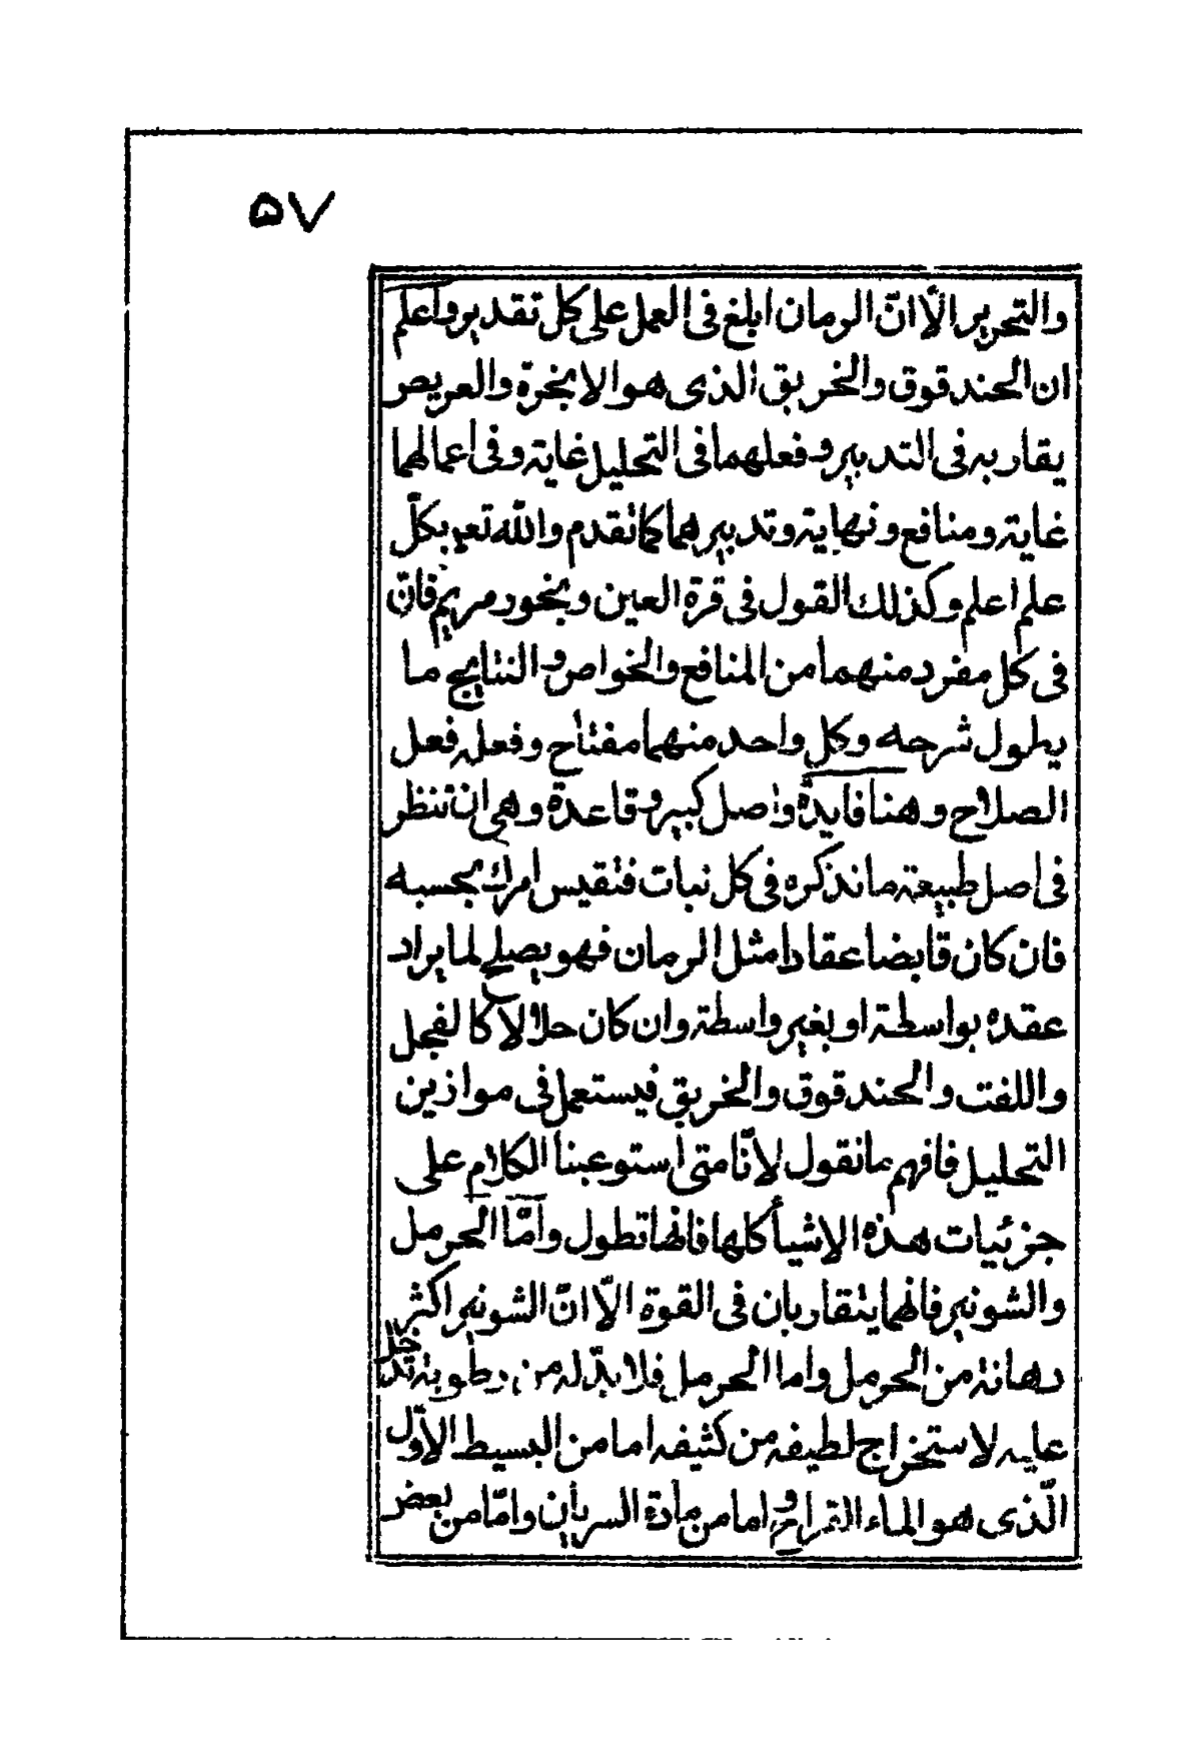 ۵۷
والتحرير الّا انّ الرمان ابلغ فى العمل على كل تقدير واعلم
ان الحندقوق والخربق الذى هو الابخرة والعريص
يقاربه فى التدبير وفعلهما فى التحليل غاية وفى اعمالهما
غاية ومنافع ونهاية وتدبيرهما كما تقدم والله تعم بكلّ
علم اعلم وكذلك القول فى قرة العين وبخور مريم فانّ
فى كل مفرد منهما من المنافع والخواص والنتايج ما
يطول شرحه وكل واحد منهما مفتاح وفعله فعل
الصلاح وهنا فايدة واصل كبير وقاعدة وهى ان تنظر
فى اصل طبيعة ما نذكره فى كل نبات فتقيس امرك بحسبه
فان كان قابضا عقادا مثل الرمان فهو يصلح لما يراد
عقده بواسطة او بغير واسطة وان كان حلالا كالفجل
واللفت والحندقوق والخربق فيستعمل فى موازين
التحليل فافهم ما نقول لانّا متى استوعبنا الكلام على
جزئيات هذه الاشيأ كلها فانها تطول وامّا الحرمل
والشونيز فانهما يتقاربان فى القوة الّا انّ الشونيز اكثر
دهانة من الحرمل واما الحرمل فلا بدّ له من رطوبة تدخل
عليه لاستخراج لطيفه من كثيفه اما من البسيط الاوّل
الّذى هو الماء القراح واما من مادة السريان وامّا من بعض